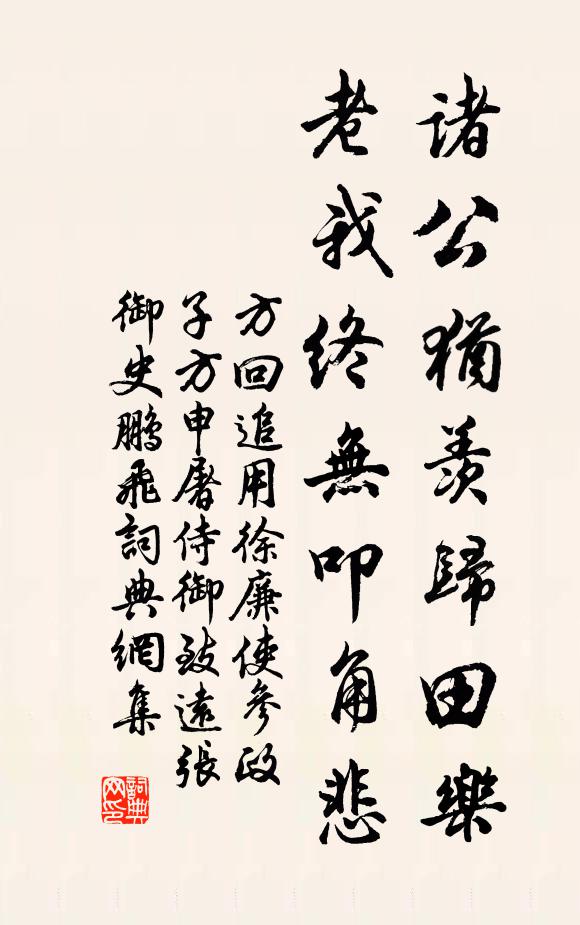 諸公猶羨歸田樂
老我終無叩角悲
方回追用徐廉使參政
子方申屠侍御致遠張
御史鵬飛詞典網集
詞典
网印